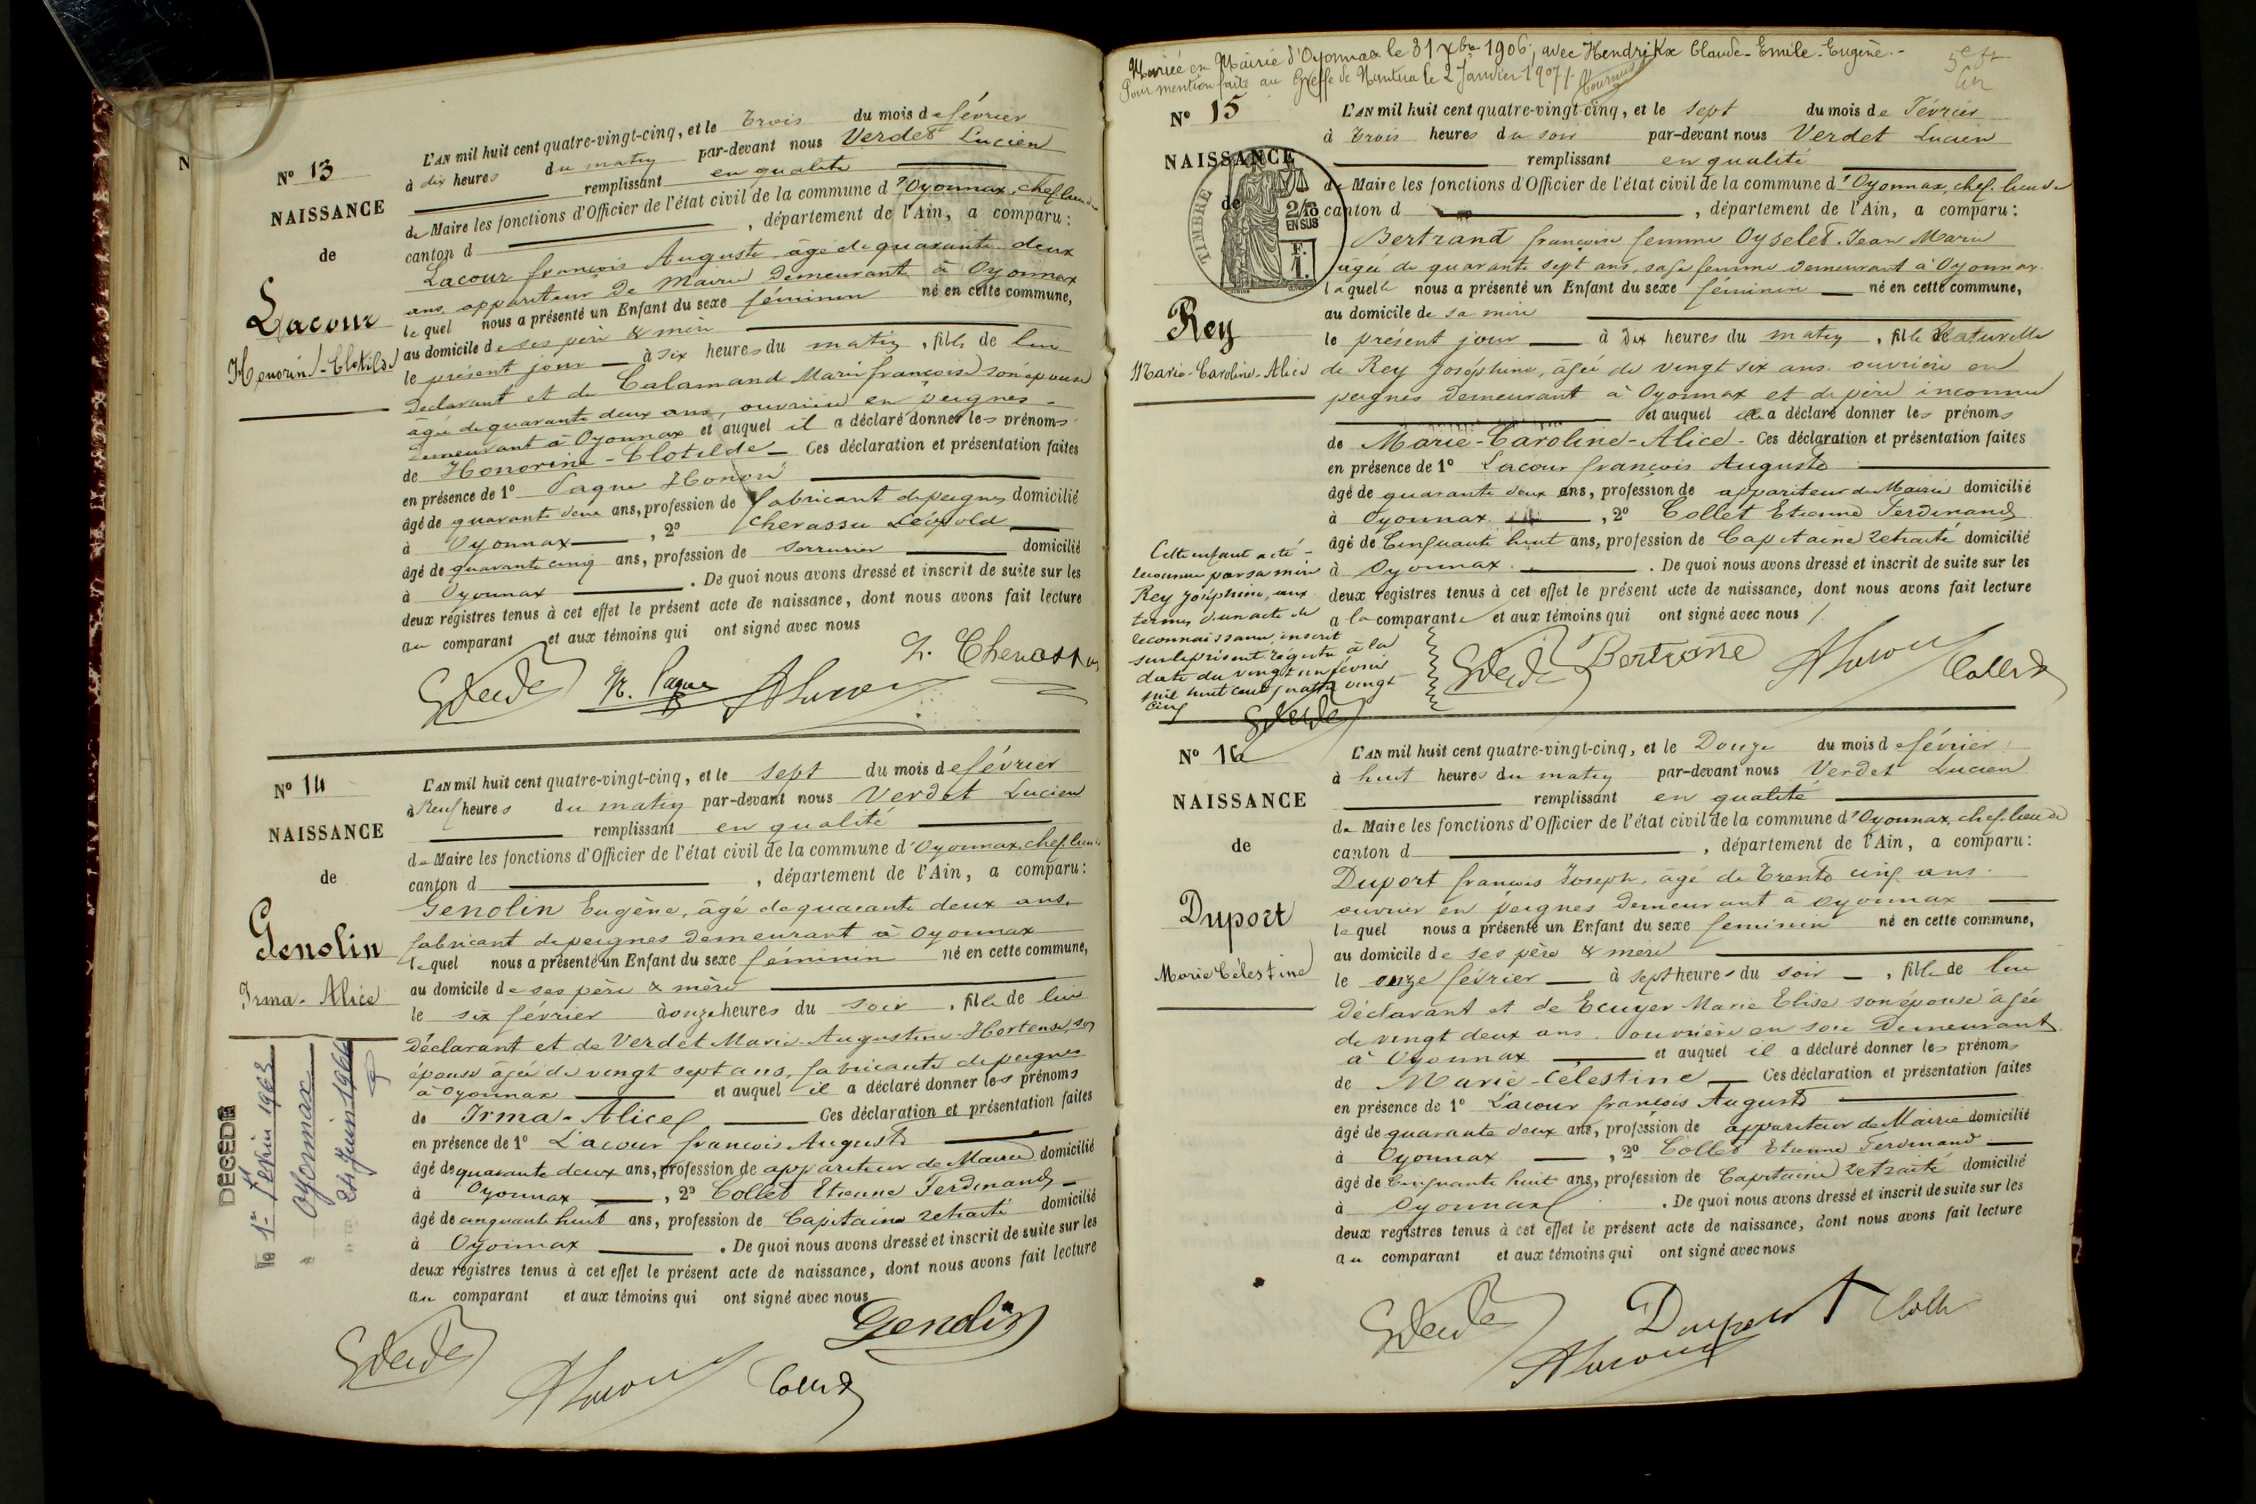 N
N° 13
NAISSANCE
de
Lacour
Honorine-Clotilde
L'AN mil huit cent quatre-vingt-cinq, et le Trois du mois de février
à dix heures du matin par-devant nous Verdet Lucien
remplissant en qualité
de Maire les fonctions d'Officier de l'état civil de la commune d'Oyonnax, chef lieu de
canton d , département de l'Ain, a comparu :
Lacour françois Auguste, âgé de quarante deux
ans, appariteur de Mairie demeurant à Oyonnax
lequel nous a présenté un Enfant du sexe féminin né en cette commune,
au domicile de ses père & mère
le présent jour à six heures du matin, fille de lui
Déclarant et de Calamand Marie françoise son épouse
âgée de quarante deux ans, ouvrière en peignes
demeurant à Oyonnax et auquel il a déclaré donner les prénoms
de Honorine-Clotilde Ces déclaration et présentation faites
en présence de 1° Pagne Honoré
âgé de quarante deux ans, profession de fabricant de peignes domicilié
à Oyonnax , 2° Chevassu Léopold
âgé de quarante cinq ans, profession de serrurier domicilié
à Oyonnax . De quoi nous avons dressé et inscrit de suite sur les
deux registres tenus à cet effet le présent acte de naissance, dont nous avons fait lecture
au comparant et aux témoins qui ont signé avec nous
L. Chevassu
H. Pagne
N° 14
NAISSANCE
de
Genolin
Irma-Alice
DECEDE
le 1er Février 1963
à Oyonnax
24 Juin 1966
L'AN mil huit cent quatre-vingt-cinq, et le sept du mois de février
à Neuf heures du matin par-devant nous Verdet Lucien
remplissant en qualité
de Maire les fonctions d'Officier de l'état civil de la commune d'Oyonnax, chef lieu de
canton d , département de l'Ain, a comparu :
Genolin Eugène, âgé de quarante deux ans,
fabricant de peignes demeurant à Oyonnax
lequel nous a présenté un Enfant du sexe féminin né en cette commune,
au domicile de ses père & mère
le six février à onze heures du soir, fille de lui
Déclarant et de Verdet Marie-Augustine-Hortense, son
épouse âgée de vingt sept ans, fabricante de peignes
à Oyonnax et auquel il a déclaré donner les prénoms
de Irma-Alice Ces déclaration et présentation faites
en présence de 1° Lacour françois Auguste
âgé de quarante deux ans, profession de appariteur de Mairie domicilié
à Oyonnax , 2° Collet Etienne Ferdinand
âgé de cinquante huit ans, profession de Capitaine retraité domicilié
à Oyonnax . De quoi nous avons dressé et inscrit de suite sur les
deux registres tenus à cet effet le présent acte de naissance, dont nous avons fait lecture
au comparant et aux témoins qui ont signé avec nous
Genolin
Collet
Mariée en Mairie d'Oyonnax le 31 Xbre 1906, avec Hendrikx Claude-Emile-Eugène.-
Pour mention faite au Greffe de Nantua le 2 Janvier 1907
N° 15
NAISSANCE
de
TIMBRE
2/10
EN SUS
F.
1.
Rey
Marie-Caroline-Alice
Cette enfant a été
reconnue par sa mère
Rey Joséphine, aux
termes d'un acte de
reconnaissance, inscrit
sur le présent registre à la
date du vingt un février
mil huit cent quatre vingt
cinq
L'AN mil huit cent quatre-vingt-cinq, et le sept du mois de Février
à Trois heures du soir par-devant nous Verdet Lucien
remplissant en qualité
de Maire les fonctions d'Officier de l'état civil de la commune d'Oyonnax, chef-lieu de
canton d , département de l'Ain, a comparu :
Bertrand françoise femme Oyselet Jean Marie
âgée de quarante sept ans, sage femme demeurant à Oyonnax
laquelle nous a présenté un Enfant du sexe féminin né en cette commune,
au domicile de sa mère
le présent jour à dix heures du matin, fille Naturelle
de Rey Joséphine, âgée de vingt six ans ouvrière en
peignes demeurant à Oyonnax et de père inconnu
et auquel elle a déclaré donner les prénoms
de Marie-Caroline-Alice - Ces déclaration et présentation faites
en présence de 1° Lacour françois Auguste
âgé de quarante deux ans, profession de appariteur de Mairie domicilié
à Oyonnax , 2° Collet Etienne Ferdinand
âgé de Cinquante huit ans, profession de Capitaine retraité domicilié
à Oyonnax . De quoi nous avons dressé et inscrit de suite sur les
deux registres tenus à cet effet le présent acte de naissance, dont nous avons fait lecture
a la comparante et aux témoins qui ont signé avec nous
Bertrand
Collet
N° 16
NAISSANCE
de
Duport
Marie Célestine
L'AN mil huit cent quatre-vingt-cinq, et le Douze du mois de février
à huit heures du matin par-devant nous Verdet Lucien
remplissant en qualité
de Maire les fonctions d'Officier de l'état civil de la commune d'Oyonnax, chef-lieu de
canton d , département de l'Ain, a comparu :
Duport françois Joseph, âgé de Trente cinq ans
ouvrier en peignes demeurant à Oyonnax
lequel nous a présenté un Enfant du sexe féminin né en cette commune,
au domicile de ses père & mère
le onze février à sept heures du soir, fille de lui
Déclarant et de Ecuyer Marie Elise son épouse âgée
de vingt deux ans ouvrière en soie demeurant
à Oyonnax et auquel il a déclaré donner les prénoms
de Marie-Célestine Ces déclaration et présentation faites
en présence de 1° Lacour françois Auguste
âgé de quarante deux ans, profession de appariteur de Mairie domicilié
à Oyonnax , 2° Collet Etienne Ferdinand
âgé de Cinquante huit ans, profession de Capitaine retraité domicilié
à Oyonnax . De quoi nous avons dressé et inscrit de suite sur les
deux registres tenus à cet effet le présent acte de naissance, dont nous avons fait lecture
au comparant et aux témoins qui ont signé avec nous
Duport